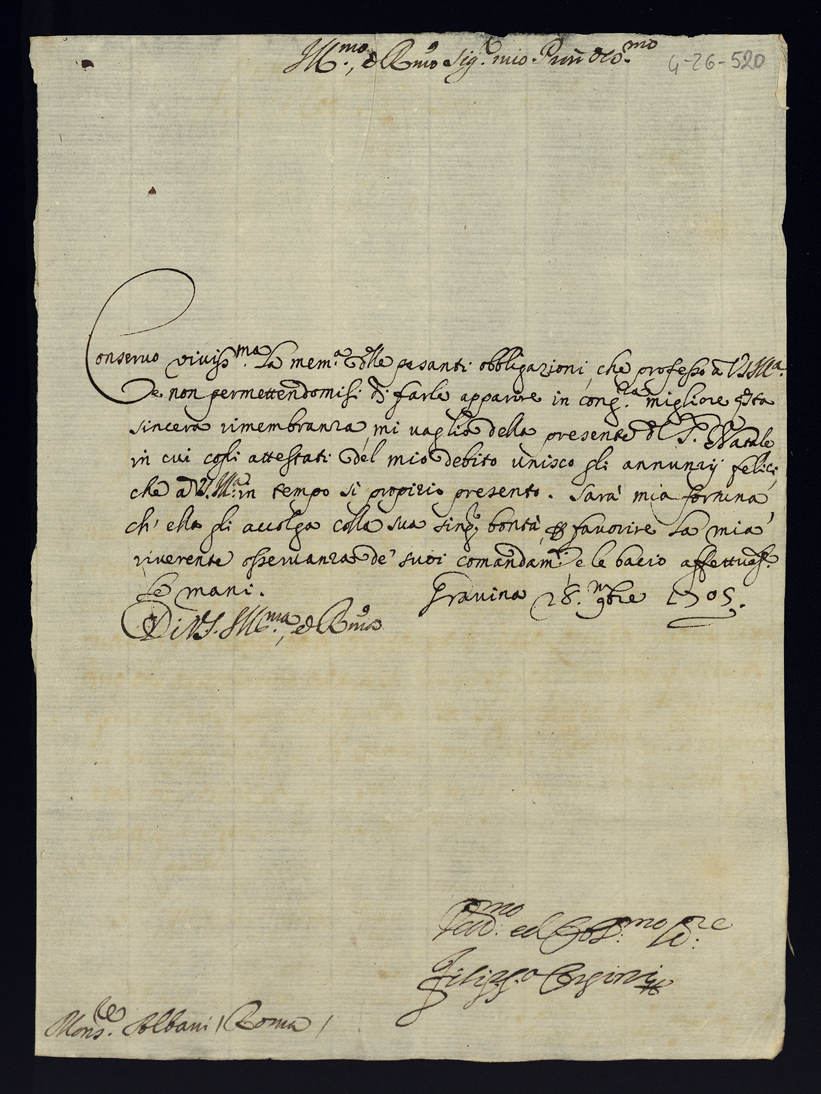 Ill.mo, e R.mo Sig.r mio P.rōn Oss.mo
4-26-520
Conservo viviss.ma la mem.a delle pesanti obbligazioni, che professo a V.S.Ill.a
e non permettendomisi di farle apparire in cong.ra migliore q̃sta
sincera rimembranza, mi vaglio della presente del S. Natale
in cui cogli attestati del mio debito unisco gli annunzj felici,
che a V.S.Ill.a in tempo sì propizio presento. Sarà mia fortuna
ch' ella gli accolga colla sua sing.r bontà, favorire la mia
riverente osservanza de' suoi comandam.ti, e le bacio affettuos.e
le mani. Gravina 28. 9mbre 1705.
Di V.S. Ill.ma, e R.ma
ed Obb.mo Se.re
Filippo Orsini
Mons.re Albani / Roma /